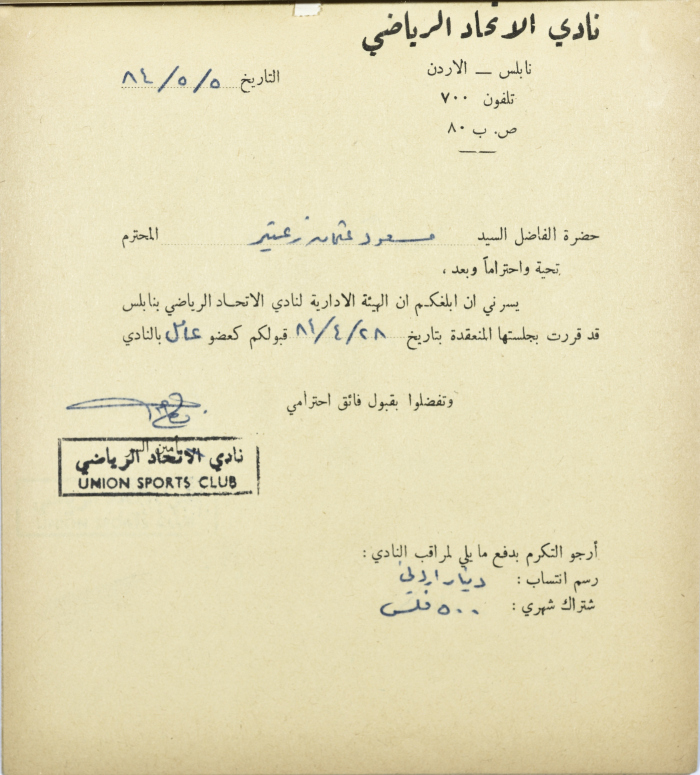 نادي الاتحاد الرياضي
نابلس — الاردن
تلفون ٧٠٠
ص. ب ٨٠
التاريخ ٥/٥/٨٤
حضرة الفاضل السيد مسعود عثمان زعيتر المحترم
تحية واحتراماً وبعد ،
يسرني ان ابلغكم ان الهيئة الادارية لنادي الاتحاد الرياضي بنابلس
قد قررت بجلستها المنعقدة بتاريخ ٢٨/٤/٨٤ قبولكم كعضو عامل بالنادي
وتفضلوا بقبول فائق احترامي
أمين
نادي الاتحاد الرياضي
UNION SPORTS CLUB
أرجو التكرم بدفع ما يلي لمراقب النادي :
رسم انتساب : دينار اردني
شتراك شهري : ٥٠٠ فلس